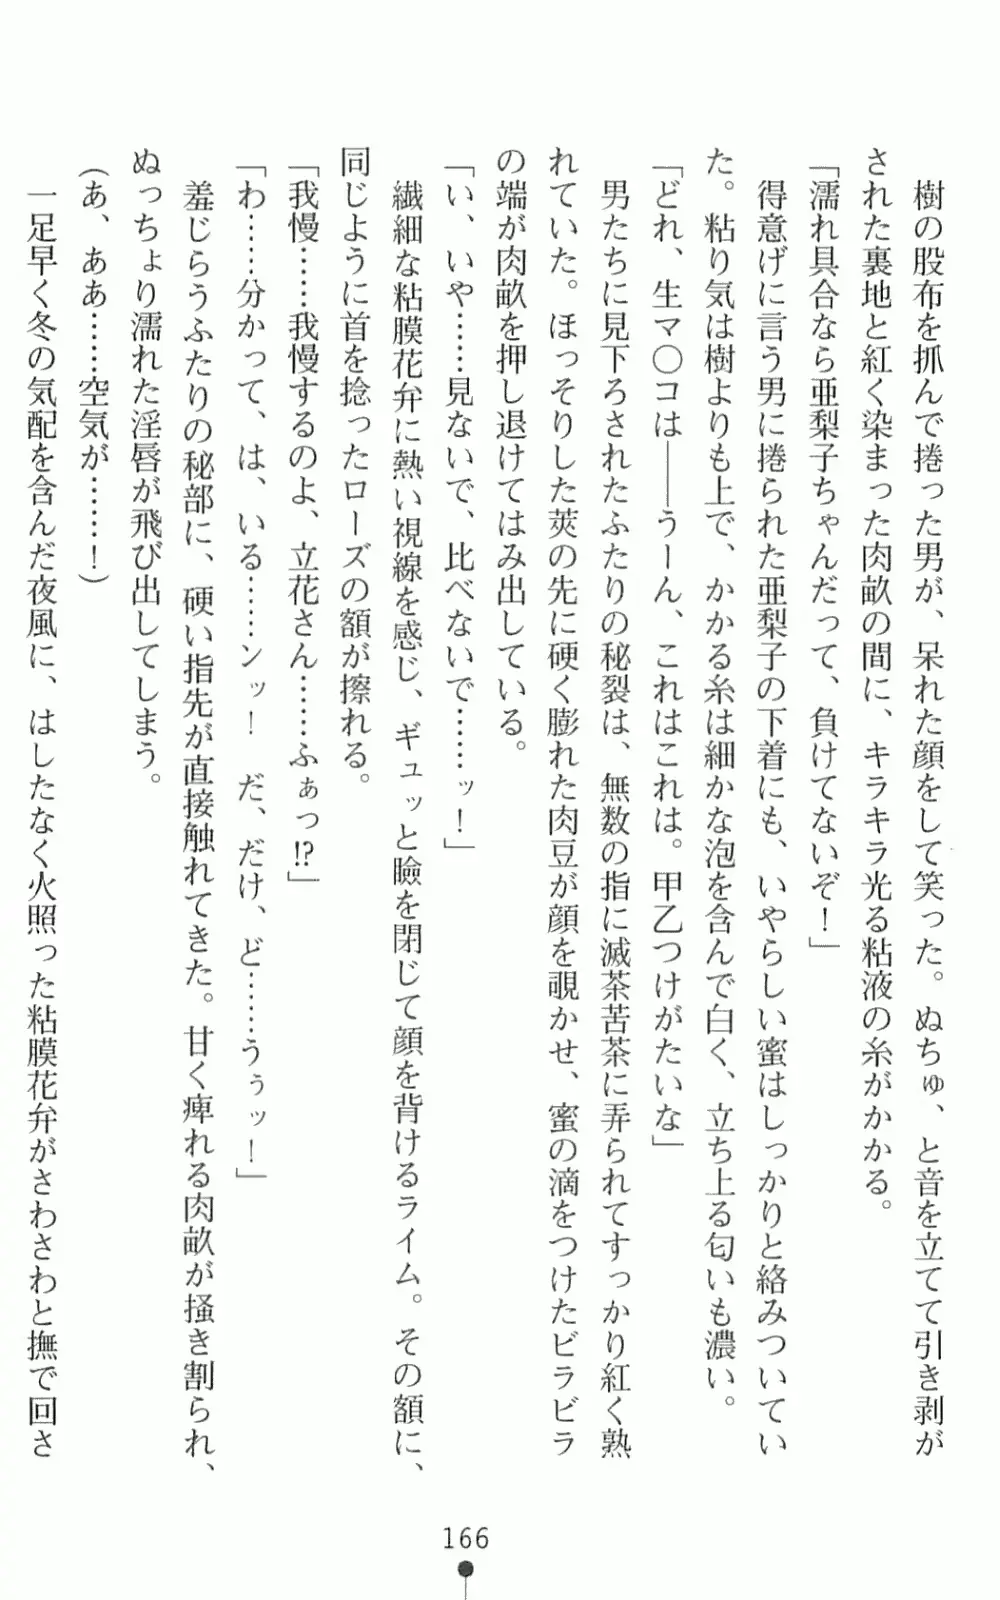 樹の股布を抓んで捲った男が、呆れた顔をして笑った。ぬちゅ、と音を立てて引き剥が
された裏地と紅く染まった肉畝の間に、キラキラ光る粘液の糸がかかる。
「濡れ具合なら亜梨子ちゃんだって、負けてないぞ！」
得意げに言う男に捲られた亜梨子の下着にも、いやらしい蜜はしっかりと絡みついてい
た。粘り気は樹よりも上で、かかる糸は細かな泡を含んで白く、立ち上る匂いも濃い。
「どれ、生マ〇コは――うーん、これはこれは。甲乙つけがたいな」
男たちに見下ろされたふたりの秘裂は、無数の指に滅茶苦茶に弄られてすっかり紅く熟
れていた。ほっそりした莢の先に硬く膨れた肉豆が顔を覗かせ、蜜の滴をつけたビラビラ
の端が肉畝を押し退けてはみ出している。
「い、いや……見ないで、比べないで……ッ！」
繊細な粘膜花弁に熱い視線を感じ、ギュッと瞼を閉じて顔を背けるライム。その額に、
同じように首を捻ったローズの額が擦れる。
「我慢……我慢するのよ、立花さん……ふぁっ!?」
「わ……分かって、は、いる……ンッ！　だ、だけ、ど……うぅッ！」
羞じらうふたりの秘部に、硬い指先が直接触れてきた。甘く痺れる肉畝が掻き割られ、
ぬっちょり濡れた淫唇が飛び出してしまう。
(あ、ああ……空気が……！)
一足早く冬の気配を含んだ夜風に、はしたなく火照った粘膜花弁がさわさわと撫で回さ
166